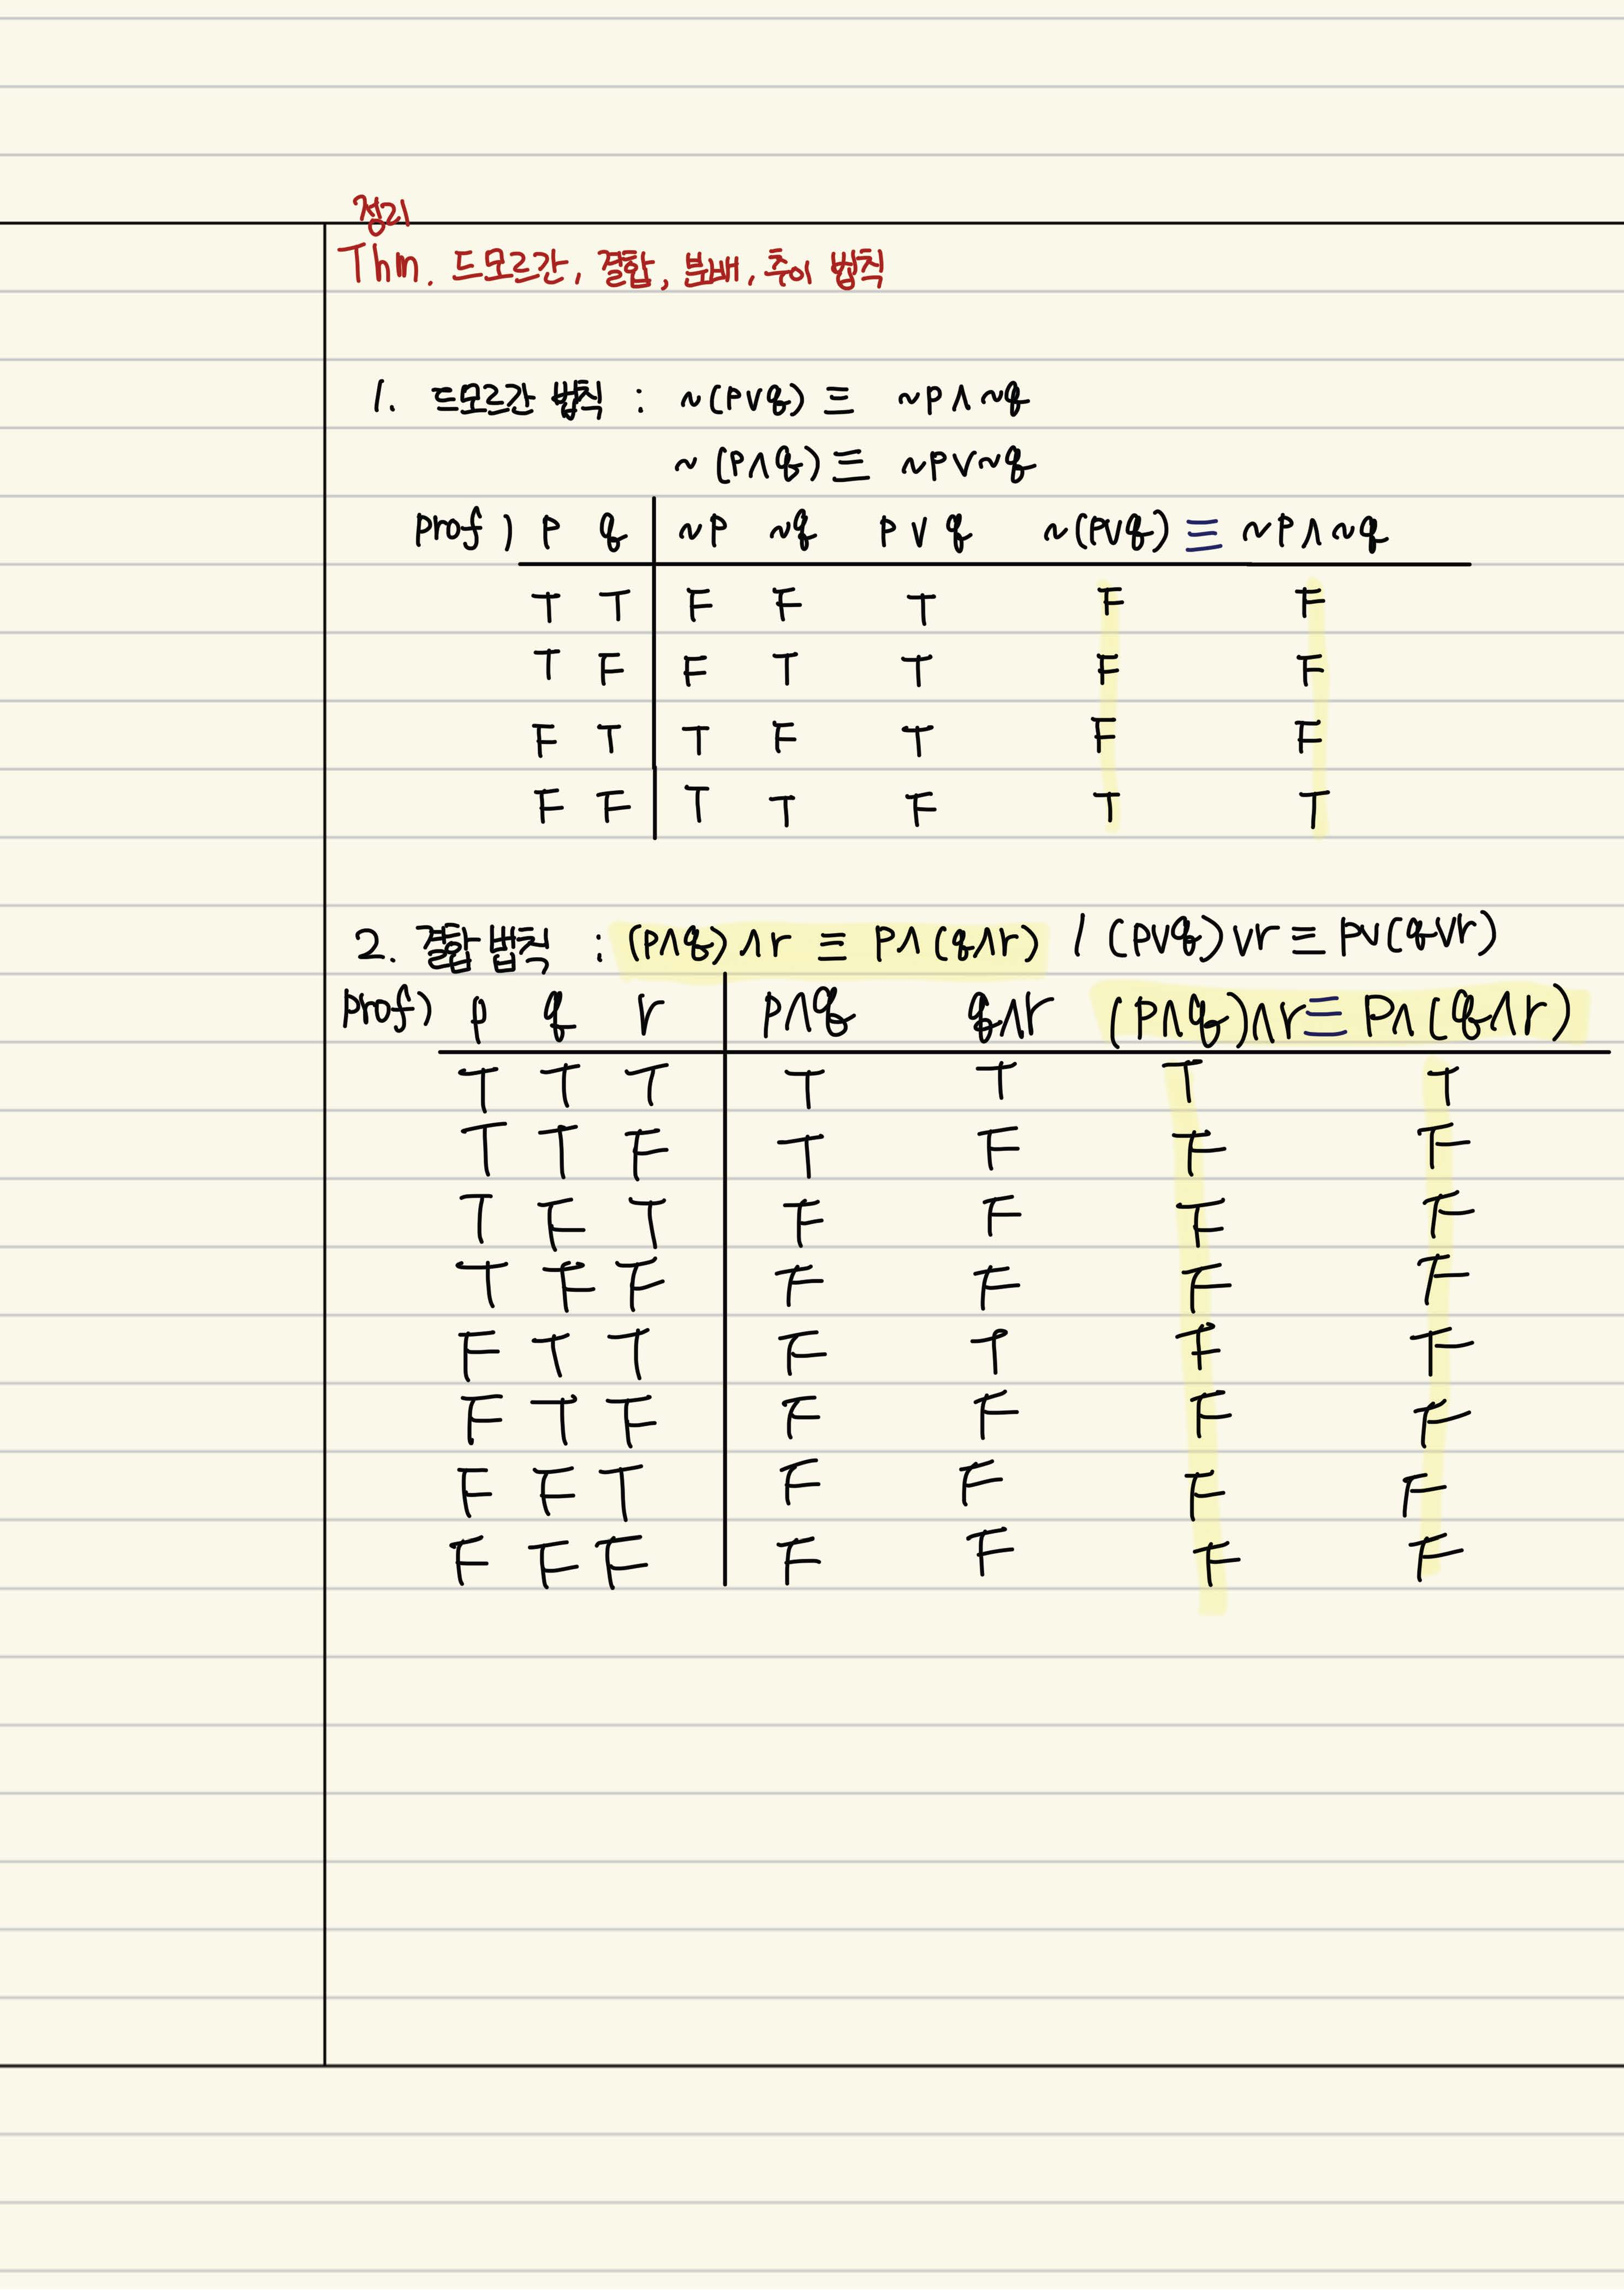 정리
Thm. 드모르간, 결합, 분배, 추이 법칙
1. 드모르간 법칙 : ~(p∨q) ≡ ~p∧~q
~(p∧q) ≡ ~p∨~q
prof) p q ~p ~q p∨q ~(p∨q) ≡ ~p∧~q
T T F F T F F
T F F T T F F
F T T F T F F
F F T T F T T
2. 결합 법칙 : (p∧q)∧r ≡ p∧(q∧r) / (p∨q)∨r ≡ p∨(q∨r)
prof) p q r p∧q q∧r (p∧q)∧r ≡ p∧(q∧r)
T T T T T T T
T T F T F F F
T F T F F F F
T F F F F F F
F T T F T F F
F T F F F F F
F F T F F F F
F F F F F F F